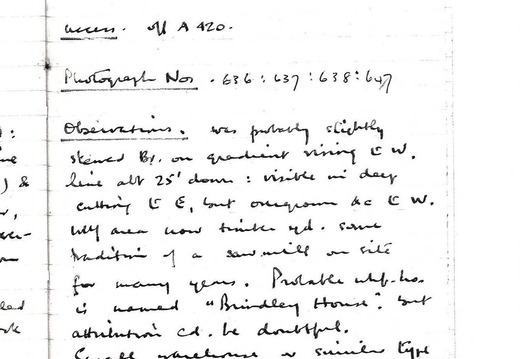 access. off A 420.
Photograph Nos. 636 : 637 : 638 : 647
Observations. was probably slightly
skewed Br. on gradient rising to W.
line abt 25' down : visible in deep
cutting to E, but overgrown &c to W.
whf area now timber yd. some
tradition of a sawmill on site
for many years. Probable whf-ho.
is named "Brindley House". but
attribution cd. be doubtful.
Small warehouse or similar type
) &